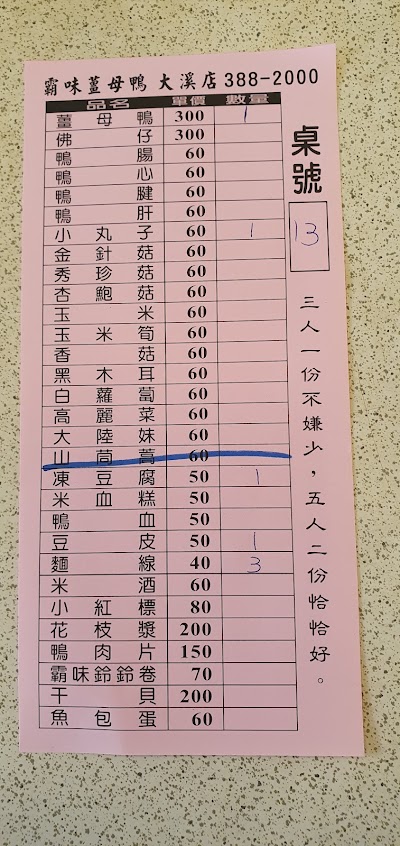 霸味薑母鴨 大溪店388-2000
品名 單價 數量
薑母鴨 300 1
佛仔 300
鴨腸 60
鴨心 60
鴨腱 60
鴨肝 60
小丸子 60 1
金針菇 60
秀珍菇 60
杏鮑菇 60
玉米 60
玉米筍 60
香菇 60
黑木耳 60
白蘿蔔 60
高麗菜 60
大陸妹 60
山茼蒿 60
凍豆腐 50 1
米血糕 50
鴨血 50
豆皮 50 1
麵線 40 3
米酒 60
小紅標 80
花枝漿 200
鴨肉片 150
霸味鈴鈴卷 70
干貝 200
魚包蛋 60
桌號
13
三人一份不嫌少，五人二份恰恰好。